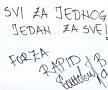 SVI ZA JEDNOG
JEDAN ZA SVE!
FORZA
RAPID